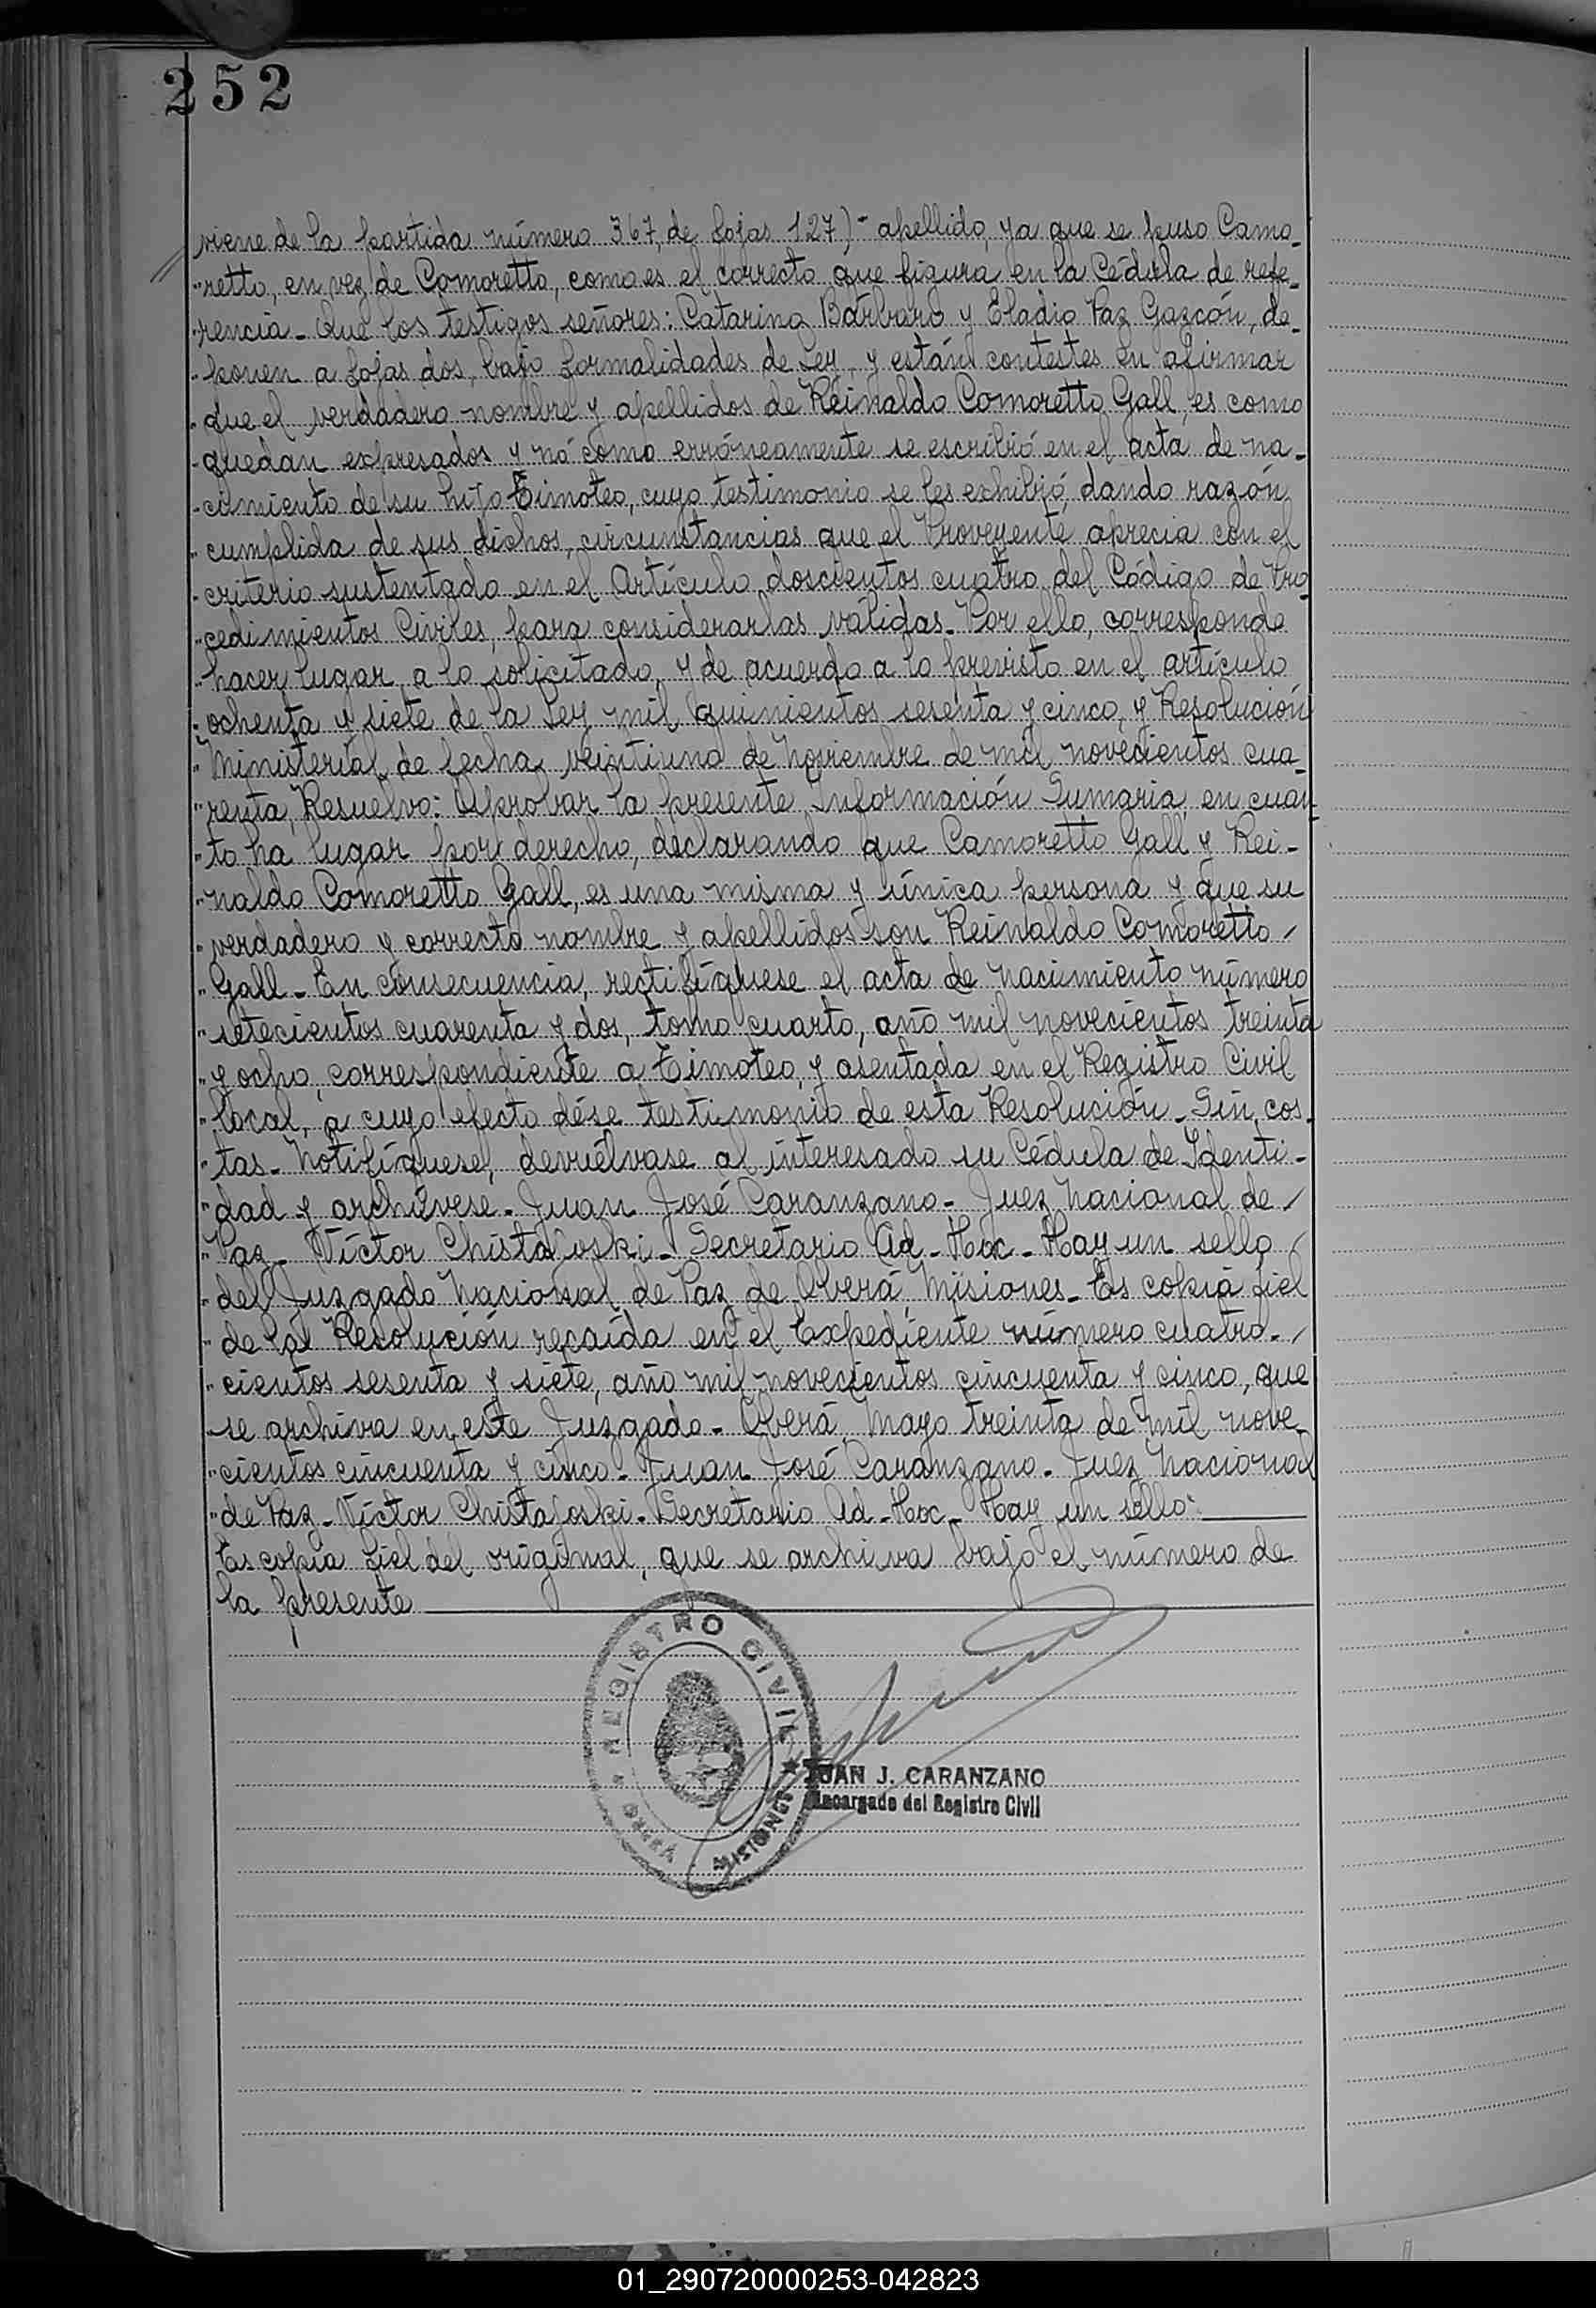 252
viene de la partida número 367, de fojas 127)- apellido, ya que se puso Camo-
"retto, en vez de Comoretto, como es el correcto que figura en la Cédula de refe-
"rencia - Que los testigos señores: Catarino Bárbaro y Eladio Paz Gazcón, de-
"ponen a fojas dos, bajo formalidades de Ley, y están contestes en afirmar
"que el verdadero nombre y apellidos de Reinaldo Comoretto Gall, es como
"quedan expresados y nó como erróneamente se escribió en el acta de na-
"cimiento de su hijo Timoteo, cuyo testimonio se les exhibió, dando razón
"cumplida de sus dichos, circunstancias que el Proveyente aprecia con el
"criterio sustentado en el Artículo doscientos cuatro del Código de Pro-
"cedimientos Civiles, para considerarlas válidas. Por ello, corresponde
"hacer lugar a lo solicitado, y de acuerdo a lo previsto en el artículo
"ochenta y siete de la Ley mil quinientos sesenta y cinco, y Resolución
"Ministerial de fecha veintiuno de Noviembre de mil novecientos cua-
"renta, Resuelvo: Aprobar la presente Información Sumaria, en cuan-
"to ha lugar por derecho, declarando que Camoretto Gall y Rei-
"naldo Comoretto Gall, es una misma y única persona y que su
"verdadero y correcto nombre y apellidos son Reinaldo Comoretto /
"Gall - En consecuencia, rectifíquese el acta de nacimiento número
"setecientos cuarenta y dos, tomo cuarto, año mil novecientos treinta
"y ocho, correspondiente a Timoteo, y asentada en el Registro Civil
"local, a cuyo efecto dése testimonio de esta Resolución - Sin cos-
"tas - Notifíquese, devuélvase al interesado su Cédula de Identi-
"dad y archívese - Juan José Caranzano - Juez Nacional de /
"Paz - Víctor Chistafoski - Secretario Ad-Hoc - Hay un sello /
"del Juzgado Nacional de Paz de Oberá, Misiones - Es copia fiel
"de la Resolución recaída en el Expediente número cuatro- /
"cientos sesenta y siete, año mil novecientos cincuenta y cinco, que
"se archiva en este Juzgado - Oberá, Mayo treinta de mil nove-
"cientos cincuenta y cinco - Juan José Caranzano - Juez Nacional
"de Paz - Víctor Chistafoski - Secretario Ad-Hoc - Hay un sello"
Es copia fiel del original, que se archiva bajo el número de
la presente
REGISTRO CIVIL
MISIONES
JUAN J. CARANZANO
Encargado del Registro Civil
01_290720000253-042823